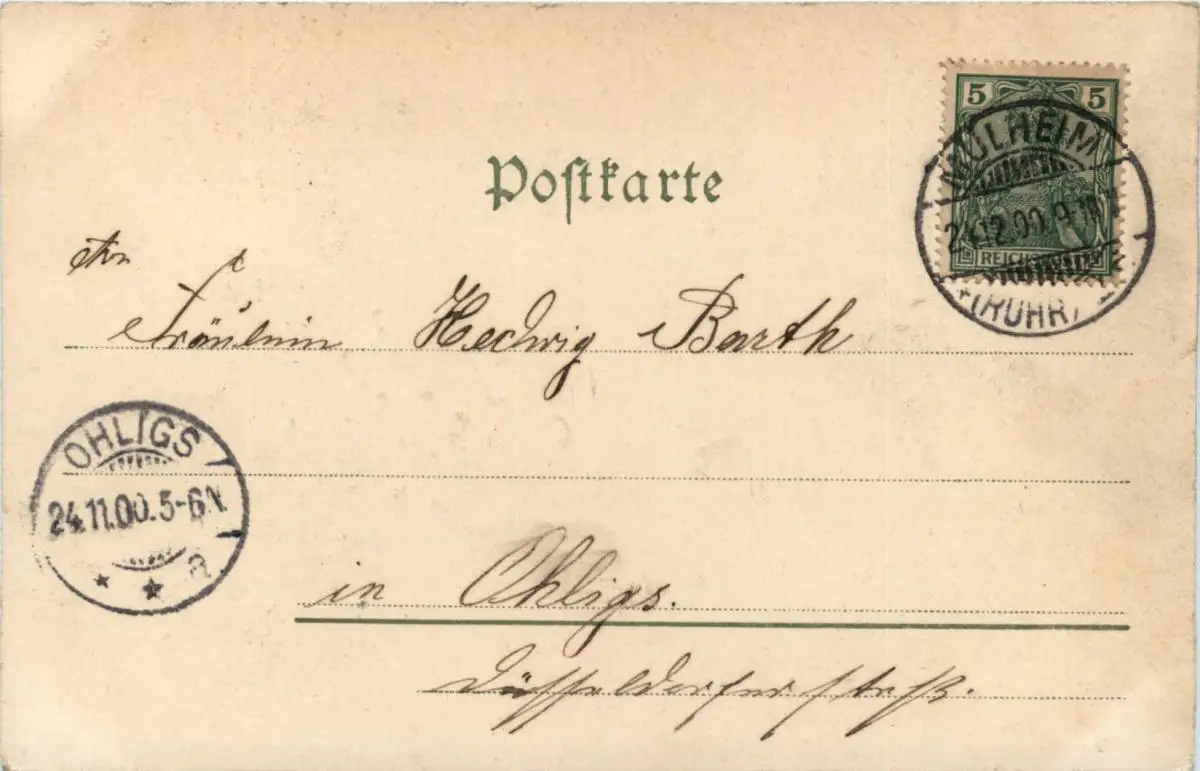 5 5
MÜLHEIM
24.12.00. 9-10V
REICHSPOST
(RUHR)
Postkarte
An
Fräulein Hedwig Barth
OHLIGS
24.11.00.5-6N.
* * a
in Ohligs.
Düsseldorferstraß.